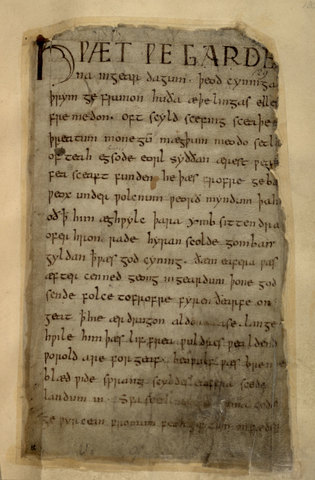 HǷÆT ǷE GARDE
na ingear dagum. þeod cyninga
þrym ge frunon huða æþelingas elle
fre medon. oft scyld scefing sceaþe
þreatum monegū mægþum meodo setl
of teah egsode eorl syððan ærest ƿear
fea sceaft funden he þæs frofre geba
ƿeox under ƿolcnum ƿeorð myndum þah
oð þ him æghƿylc þara ymb sittendra
ofer hron rade hyran scolde gomban
gyldan þ ƿæs god cyning. ðæm eafera ƿæs
æfter cenned geong in geardum þone god
sende folce tofrofre fyren ðearfe on
geat þ hie ær drugon aldor ase. lange
hƿile him þæs lif frea ƿuldres ƿealdend
ƿorold are for geaf. beoƿulf ƿæs breme
blæd ƿide sprang scyldes eafera scede
landum in. Sƿa sceal uma gode
ge ƿyrcean fromum feoh giftum on fæder